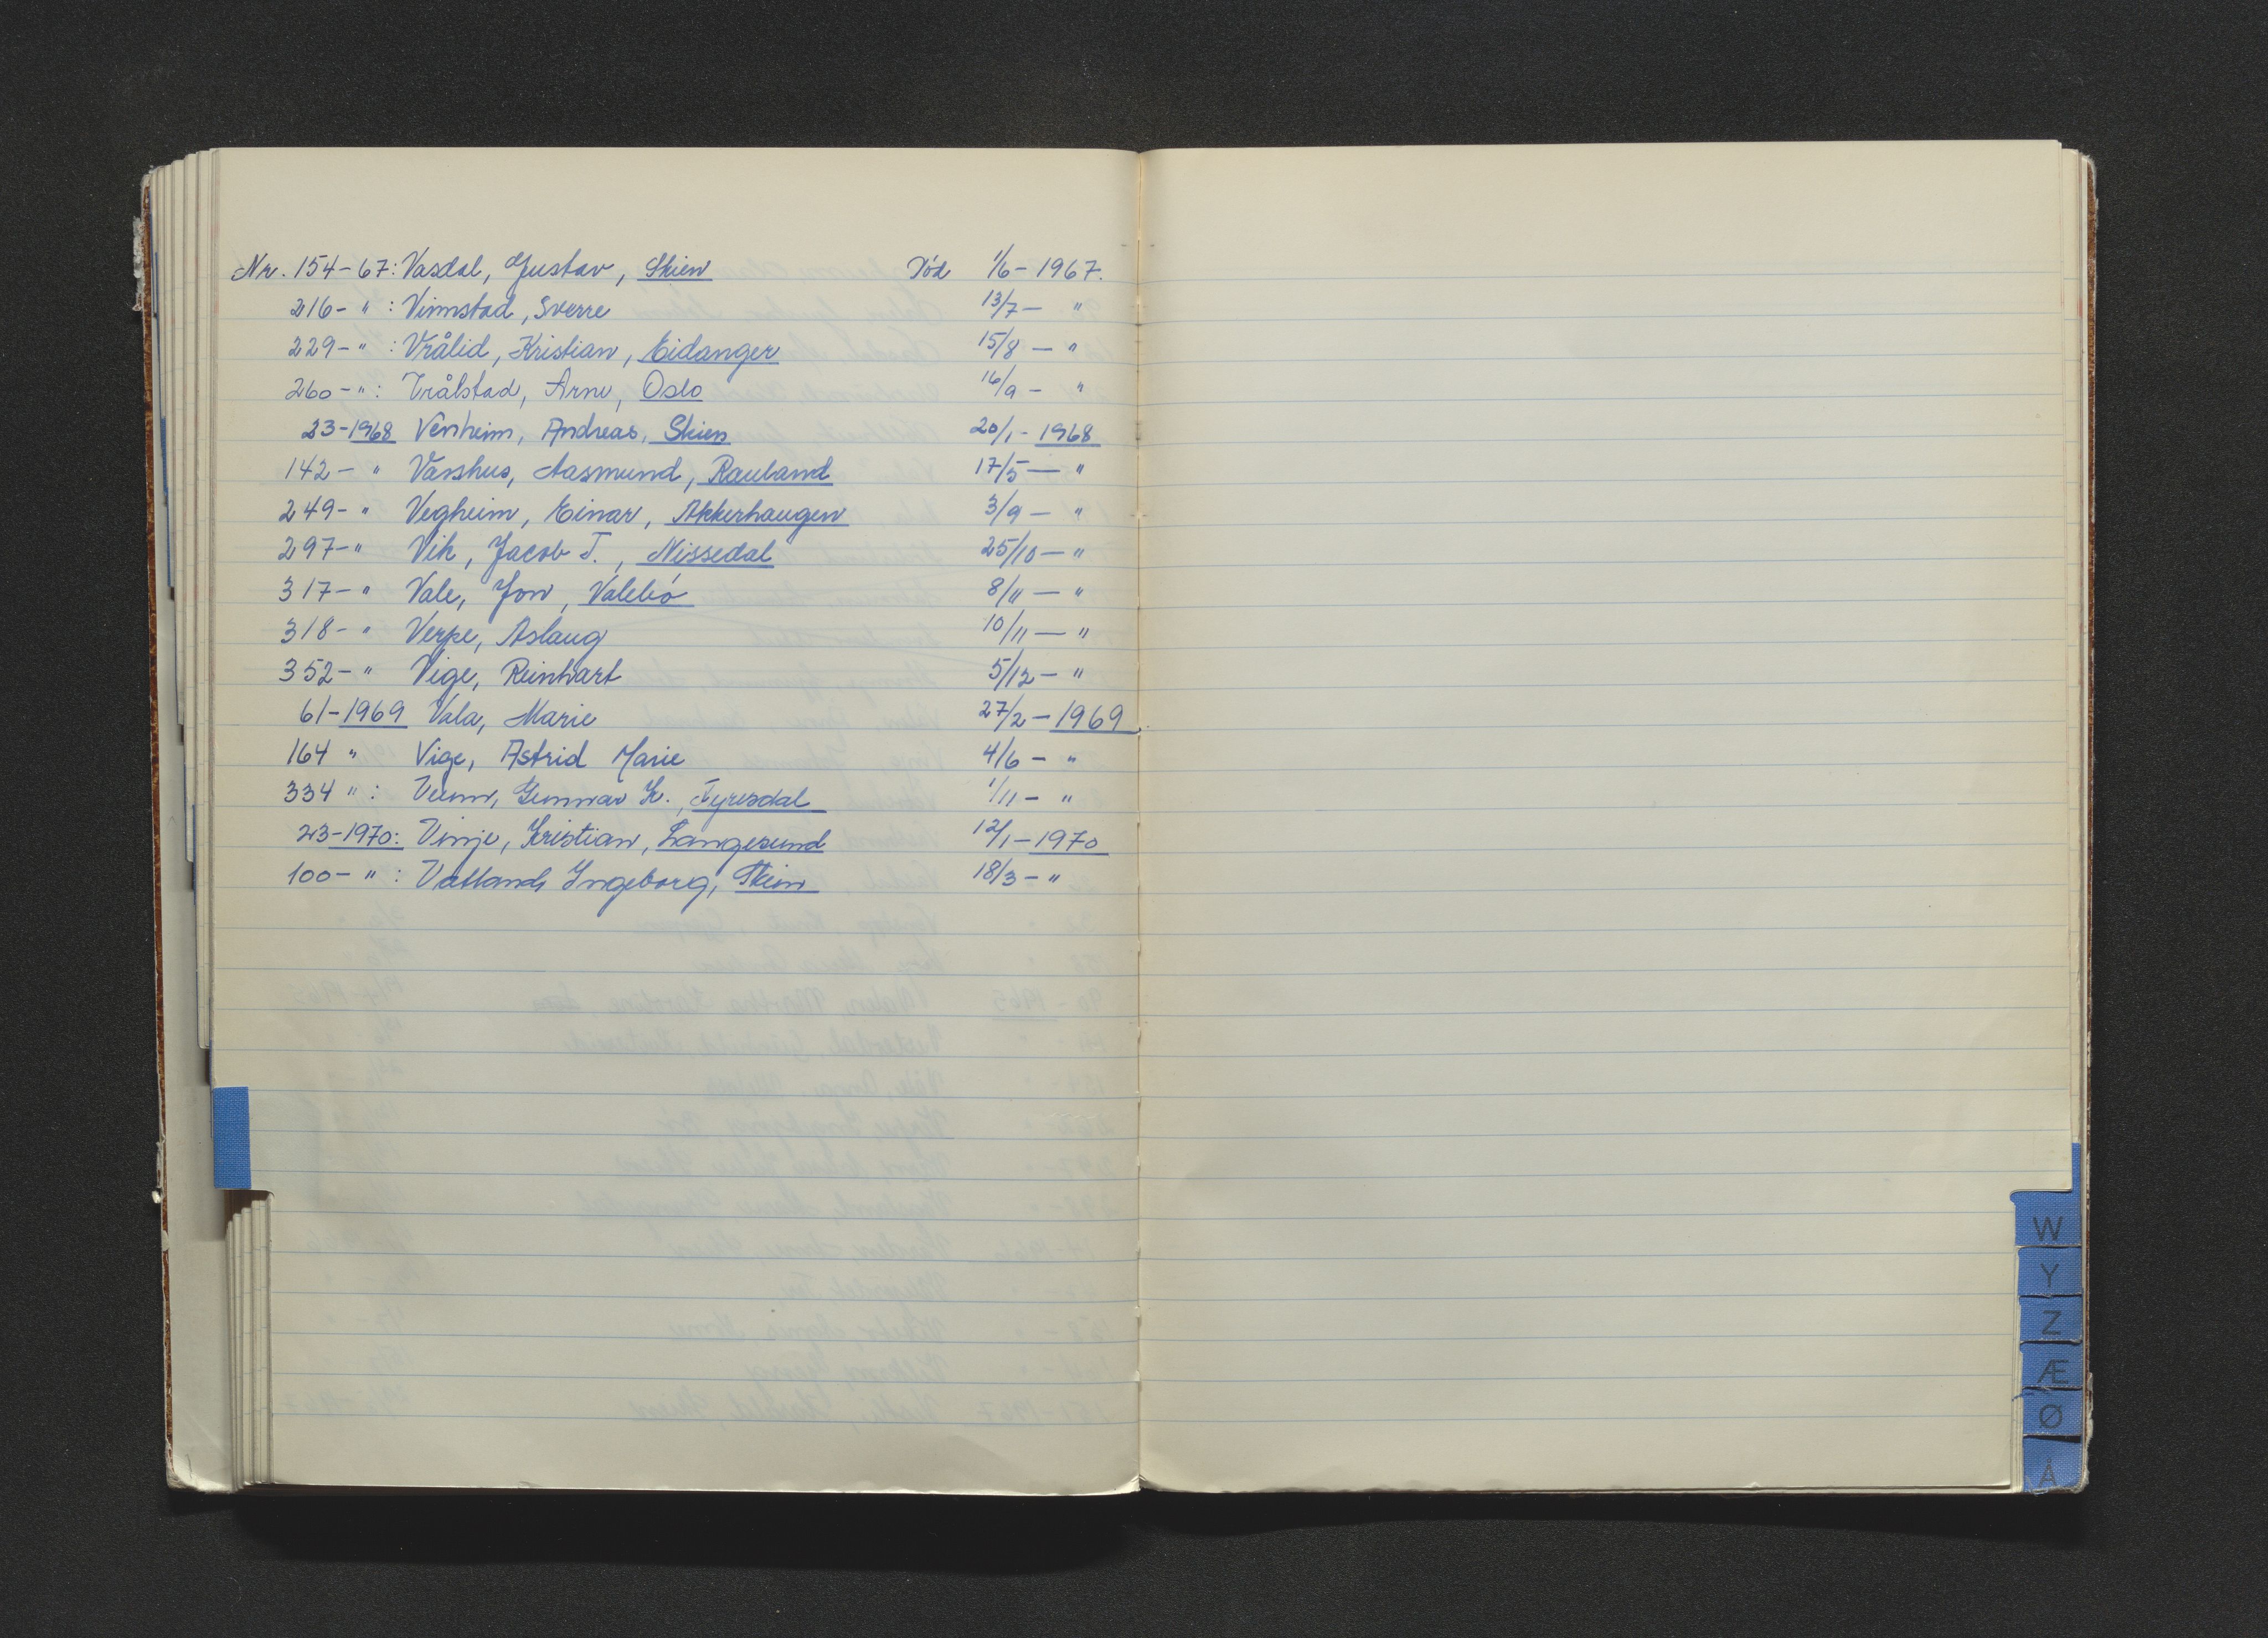 Nr. 154-67: Vasdal, Gustav, Skien Död 1/6-1967.
216- " : Vinnstad, Sverre 13/7- "
229- " : Vrålid, Kristian, Eidanger 15/8 - "
260- " : Vrålstad, Arne, Oslo 16/9 - "
23-1968 Venheim, Andreas, Skien 20/1 - 1968
142- " Vasshus, Aasmund, Rauland 17/5 - "
249- " Vegheim, Einar, Akkerhaugen 3/9 - "
297- " Vik, Jacob T., Nissedal 25/10 - "
317- " Vale, Jon, Valebö 8/11 - "
318- " Verpe, Aslaug 10/11 - "
352- " Vige, Reinhart 5/12 - "
61-1969 Vala, Marie 27/2 - 1969
164 " Vige, Astrid Marie 4/6 - "
334 " : Veum, Gunnar K., Fyresdal 1/11 - "
23-1970: Vinje, Kristian, Langesund 12/1 - 1970
100- " : Vatland, Ingeborg, Skien 18/3 - "
W
Y
Z
Æ
Ø
Å